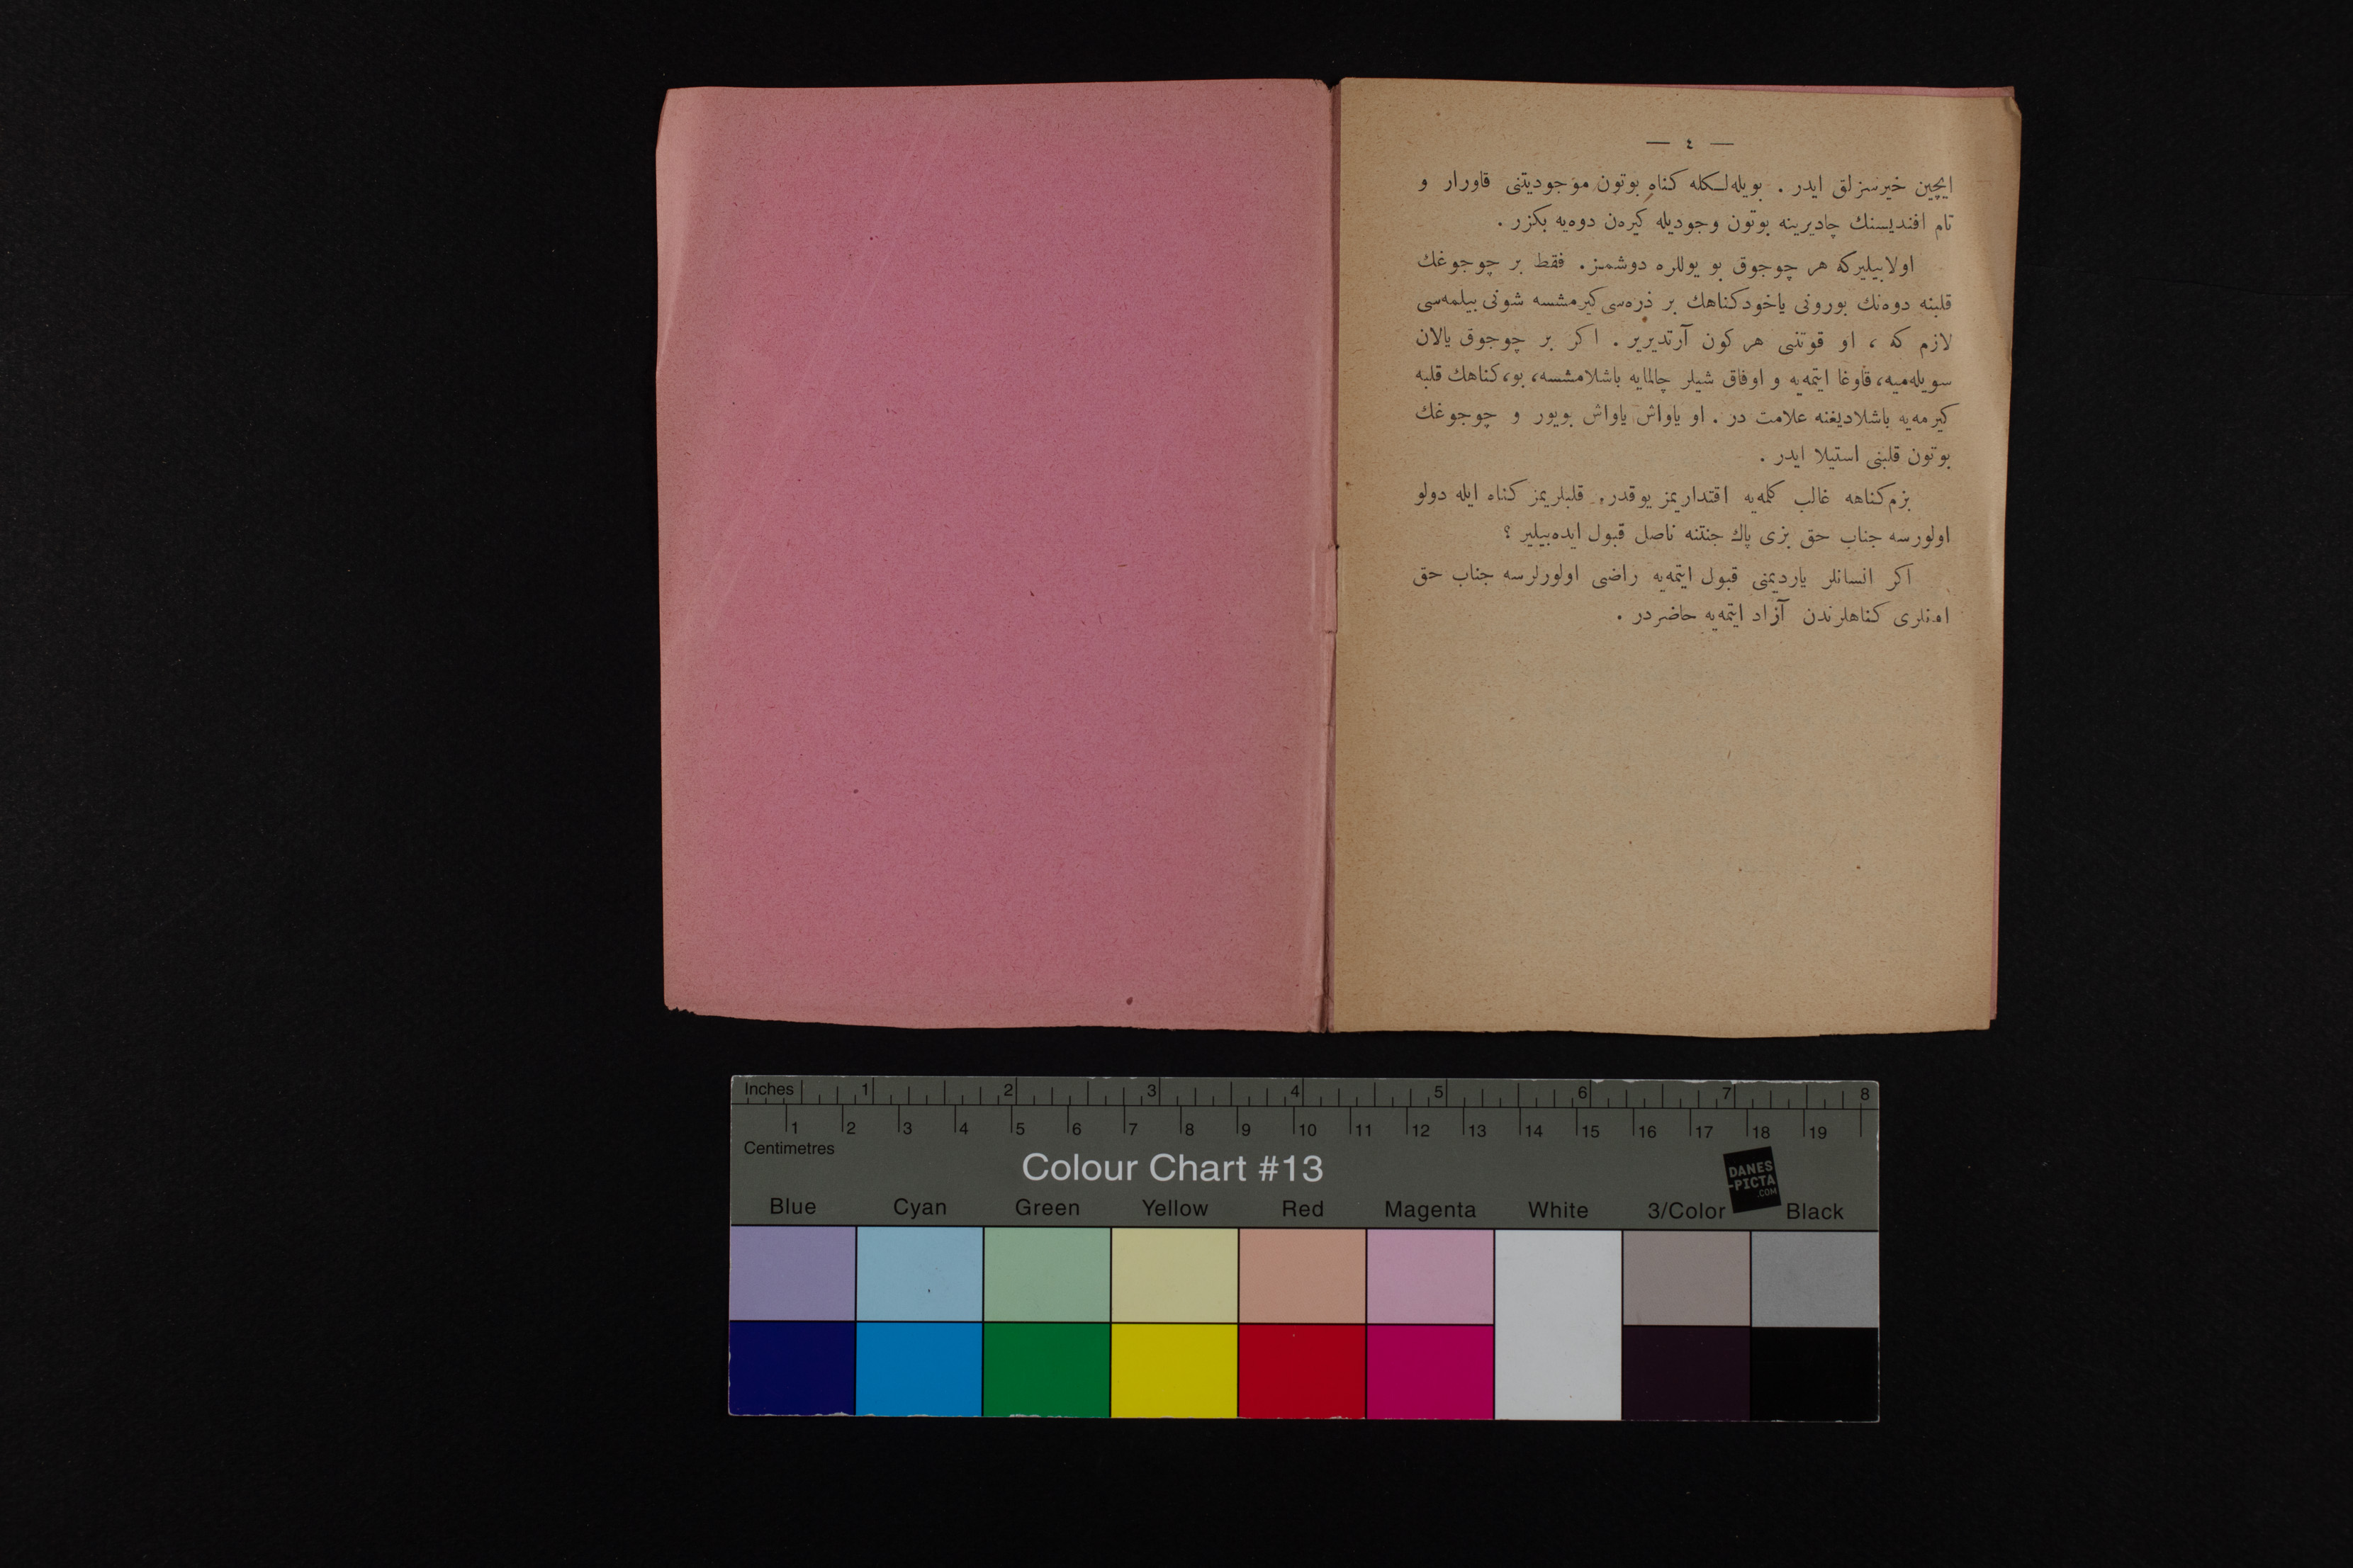 — ٤ —
ایچین خیرسزلق ایدر . بویله‌لسکله کناه بوتون موجودیتنی قاورار و
تام افندیسنك چادیرینه بوتون وجودیله کیره‌ن دوه‌یه بکزر .
اولابیلیرکه هر چوجوق بو یوللره دوشمز. فقط بر چوجوغك
قلبنه دوه‌نك بورونی یاخود کناهك بر ذره‌سی کیرمشسه شونی بیلمه‌سی
لازم که ، او قوتنی هر کون آرتدیریر . اکر بر چوجوق یالان
سویله‌میه، قاوغا ایتمه‌یه و اوفاق شیلر چالمایه باشلامشسه، بو، کناهك قلبه
کیرمه‌یه باشلادیغنه علامت در . او یاواش یاواش بویور و چوجوغك
بوتون قلبنی استیلا ایدر .
بزم کناهه غالب کلمه‌یه اقتداریمز یوقدر. قلبلریمز کناه ایله دولو
اولورسه جناب حق بزی پاك جنتنه ناصل قبول ایده‌بیلیر ؟
اکر انسانلر یاردیمنی قبول ایتمه‌یه راضی اولورلرسه جناب حق
کناهلرندن آزاد ایتمه‌یه حاضردر .
Inches 1 2 3 4 5 6 7 8
1 2 3 4 5 6 7 8 9 10 11 12 13 14 15 16 17 18 19
Centimetres
Colour Chart #13
DANES
-PICTA
.COM
Blue Cyan Green Yellow Red Magenta White 3/Color Black